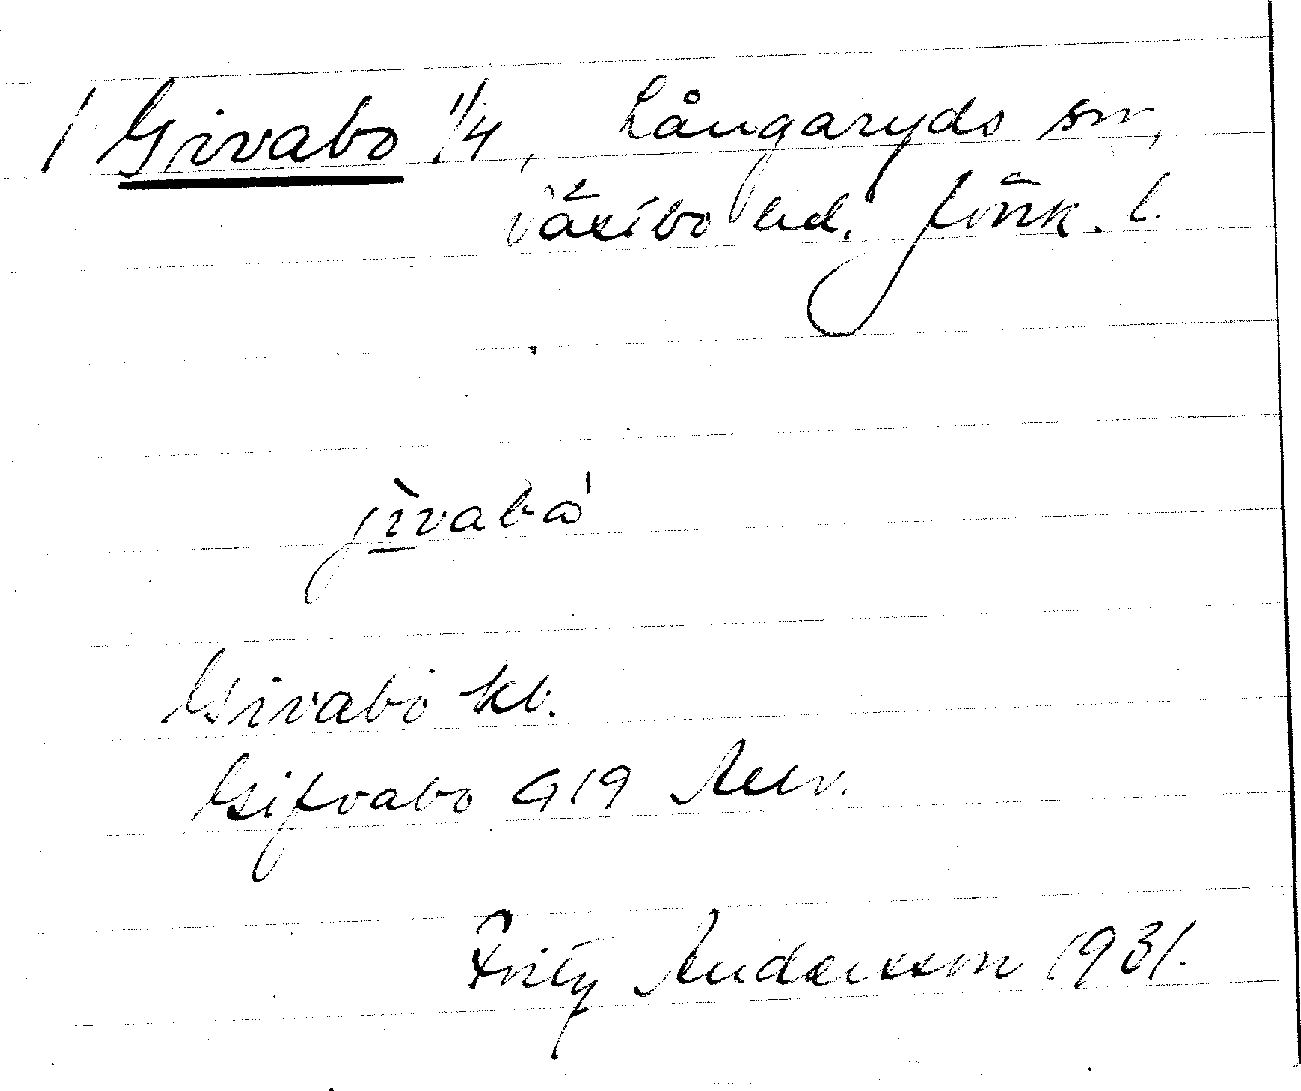 / Givabo 1/4, Långaryds sn,
Västbo hd. Jönk. l.
jìvabó
Givabo kb.
Gifvabo G19 Aeev.
Fritz Andersson 1931.